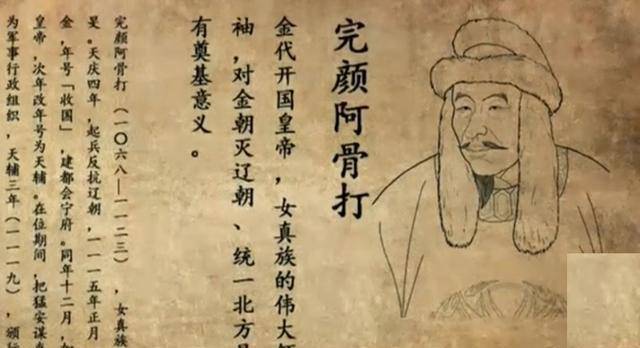 完颜阿骨打
金代开国皇帝，女真族的伟大领
袖，对金朝灭辽朝、统一北方具
有奠基意义。
完颜阿骨打（一〇六八—一一二三），女真族
旻。天庆四年，起兵反抗辽朝，一一一五年正月
金，年号「收国」，建都会宁府。同年十二月，
皇帝，次年改年号为天辅。在位期间，把猛安谋
为军事行政组织，天辅三年（一一一九），颁